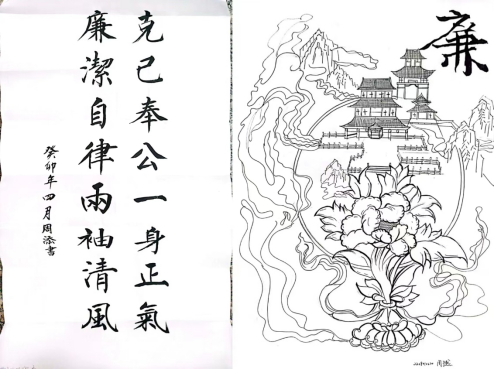 克己奉公一身正氣
廉潔自律兩袖清風
癸卯年四月周添書
廉